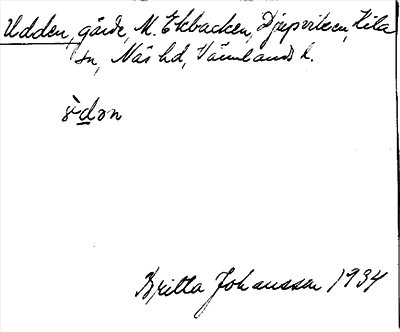 Udden, gärde, M. Ekbacken, Djupviken, Kila
sn, Näs hd, Värmlands l.
ù̀dən
Britta Johansson 1934